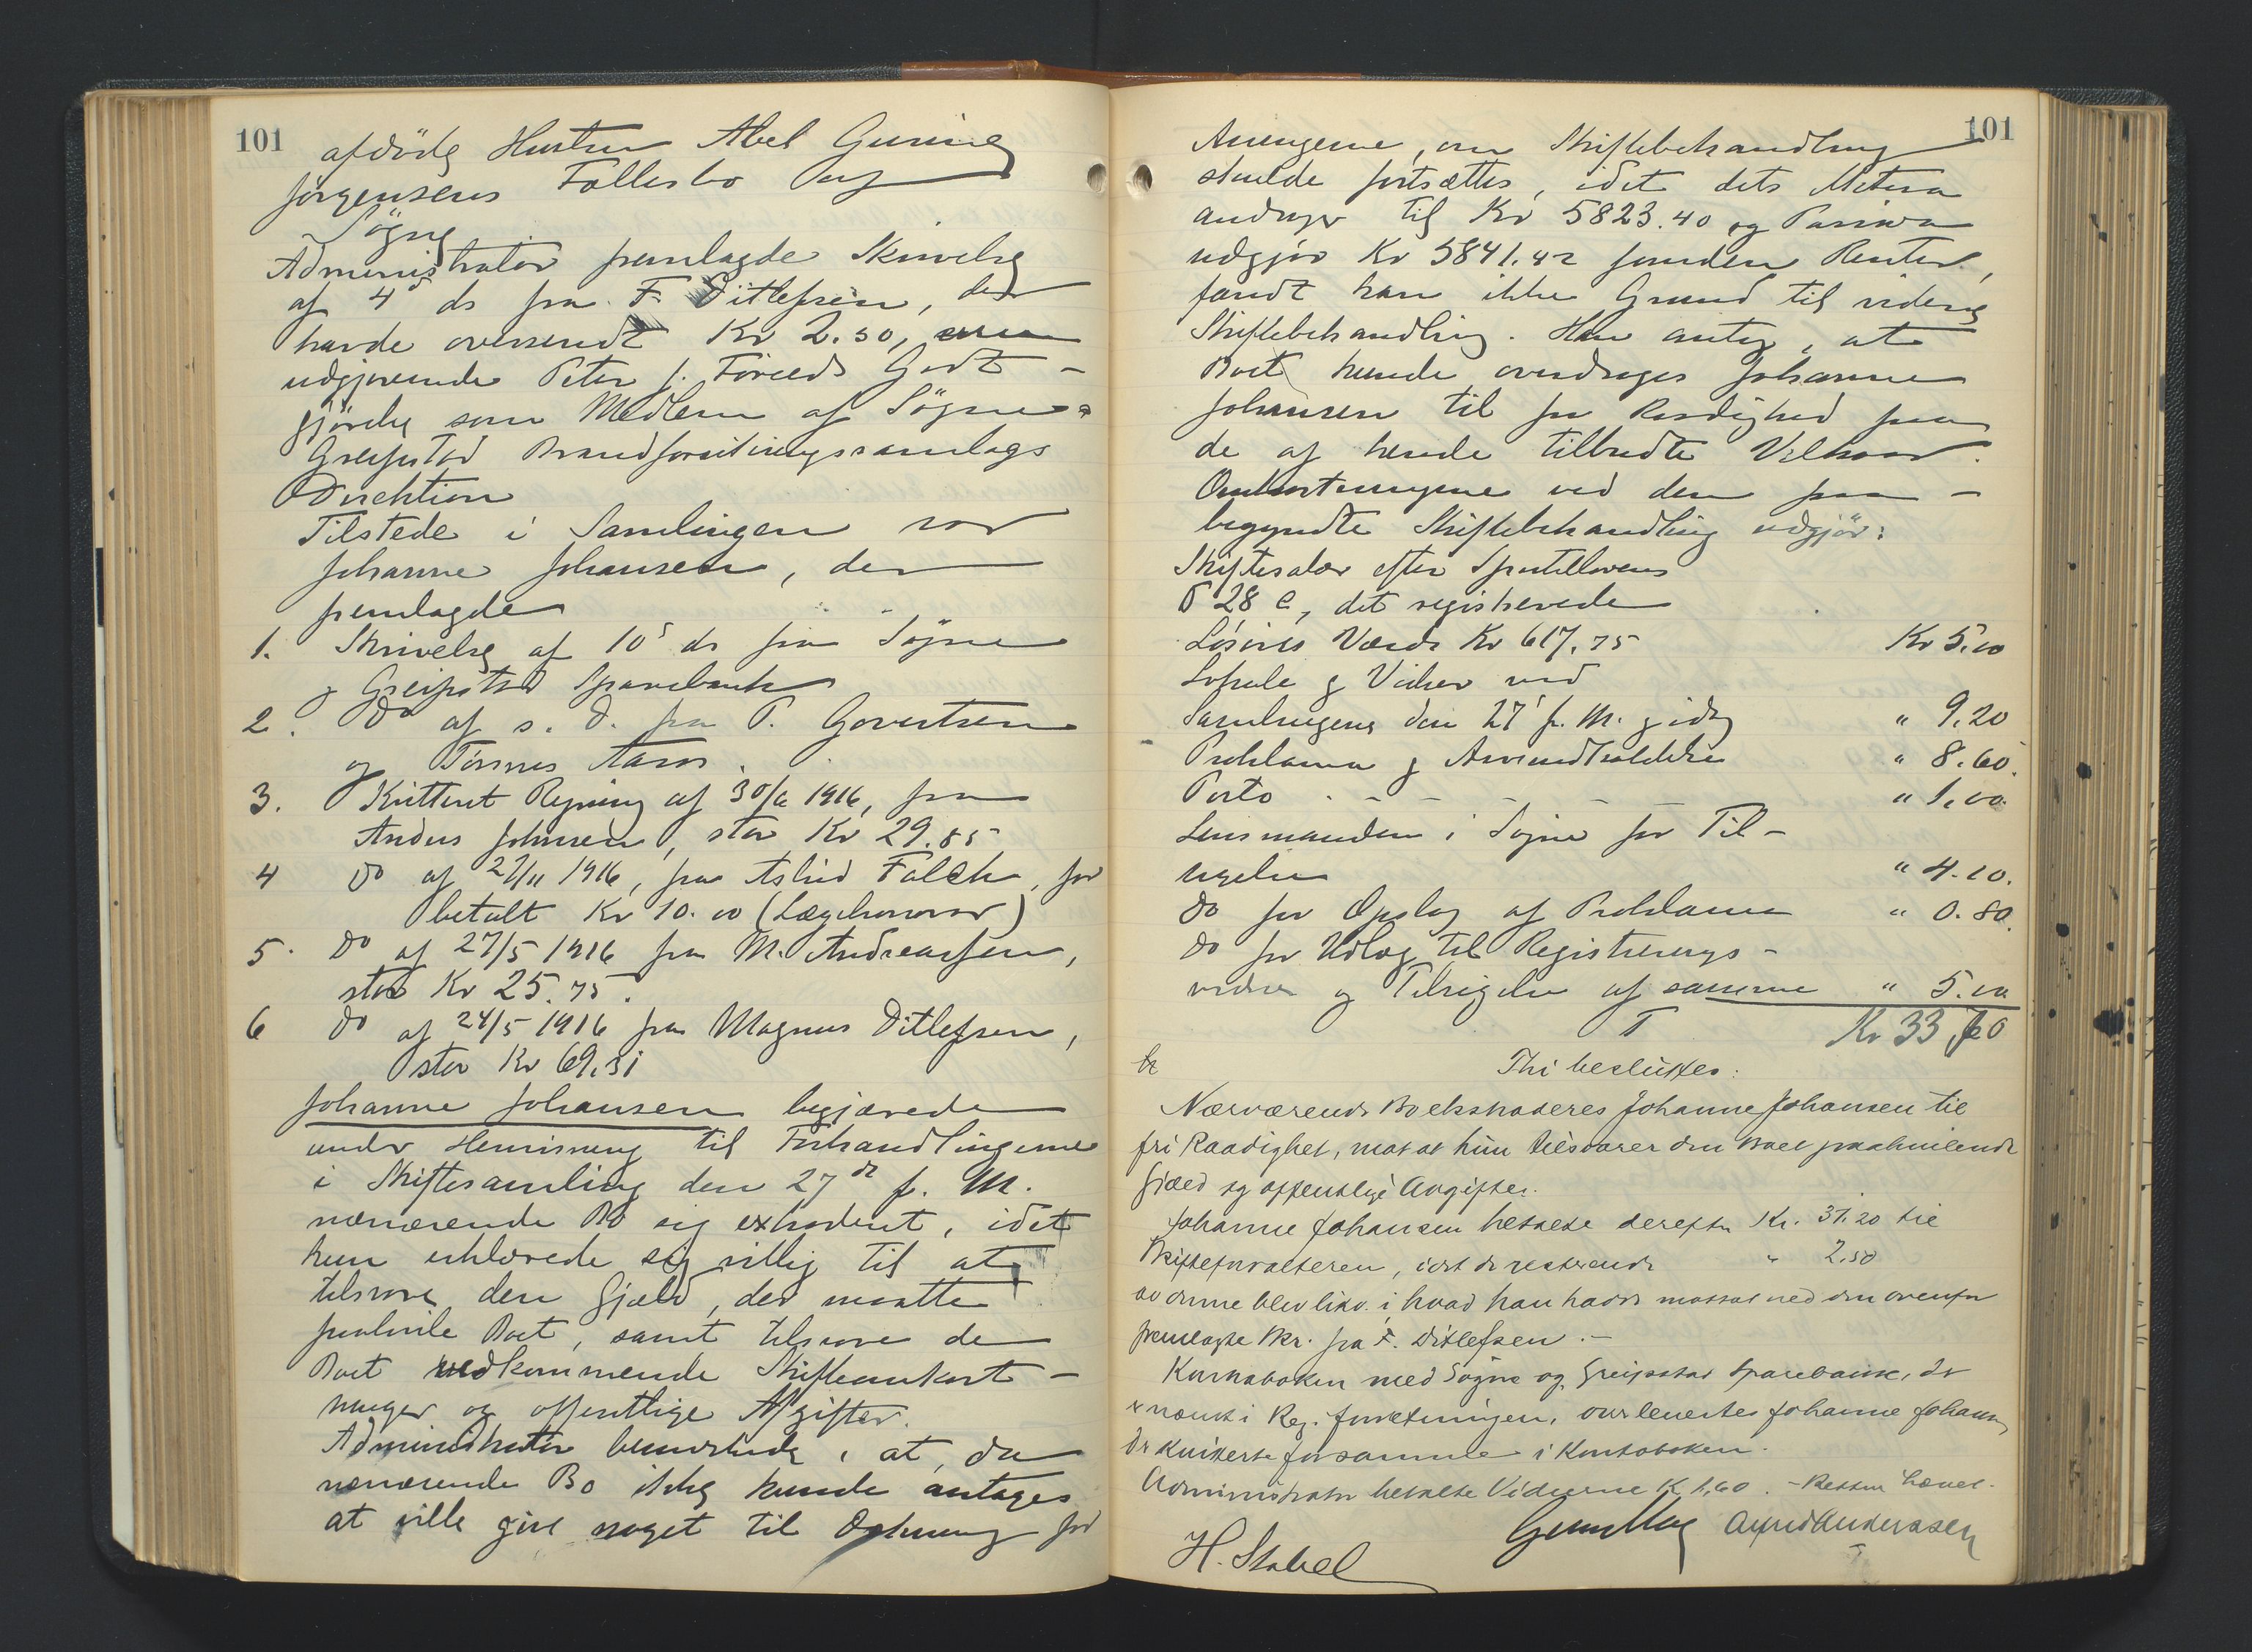 101
afdöde Hustru Abel Gurine
Jörgensens Fællesbo af
Søgne
Administrator fremlagde Skrivelse
af 4' ds fra F. Ditlefsen, der
havde oversendt Kr 2.50,
udgjørende Peter J. Godt-
gjörelse som Medlem af Søgne &
Greipstad Brandforsikringssamlags
Direktion
Tilstede i Samlingen var
Johanne Johansen, der
fremlagde
1. Skrivelse af 10' ds fra Søgne
og Greipstad Sparebank
2. Do af s. D. fra T. Govertsen
og Tønnes Aaros.
3. Kvitteret Regning af 30/6 1916, fra
Anders Johnsen, stor Kr 29.85
4 Do af 27/11 1916, fra Astrid Falch, for
betalt Kr 10.00 (Lægehonorar)
5. Do af 27/5 1916 fra M. Andreassen,
stor Kr 25.75.
6 Do af 24/5 1916 fra Magnus Ditlefsen,
stor Kr 69.31
Johanne Johansen begjærede
under Henvisning til Forhandlingerne
i Skiftesamling den 27de f. M.
nærværende Bo sig extraderet, idet
hun erklærede sig villig til at
tilsvare den Gjæld, der maatte
paahvile Boet, samt tilsvare de
Boet vedkommende Skifteomkost-
ninger og offentlige Afgifter.
Administrator bemærkede, at, da
nærværende Bo ikke kunde antages
at ville give noget til Dækning for
101
Arvingerne, om Skiftebehandling
skulde fortsættes, idet dets Aktiva
andrager til Kr 5823.40 og Passiva
udgjør Kr 5841.42 foruden Renter,
fandt han ikke Grund til videre
Skiftebehandling. Han antog, at
Boet kunde overdrages Johanne
Johansen til fri Raadighed paa
de af hende tilbudte Vilkaar.
Omkostningerne ved den paa-
begyndte Skiftebehandling udgjør:
Skiftesalær efter Sportellovens
§ 28 c, det registrerede
Løsøres Værdi Kr 617.75 Kr 5.00
Lokale og Vidner ved
Samlingene den 27' f. M. og idag " 9.20
Proklama og Arvemodtakelse " 8.60.
Porto - - - - " 1.00.
Lensmanden i Søgne for Til-
sigelse " 4.10.
Do for Opslag af Proklama " 0.80.
Do for Udlæg til Registrerings-
vidner og Tilsigelse af samme " 5.00
Kr 33,70
Thi besluttes:
Nærværende Bo ekstraderes Johanne Johansen til
fri Raadighet, mot at hun tilsvarer den Boet paahvilende
Gjæld og offentlige Avgifter.
Johanne Johansen betalte derefter Kr. 31.20 til
Skifteforvalteren, idet de resterende " 2.50
av denne blev likv. i hvad han hadde mottat ved den ovenfor
fremlagte Skr. fra F. Ditlefsen. -
Kontraboken med Søgne og Greipstad Sparebank, der
er nævnt i Reg. forretningen, overlevertes Johanne Johansen,
der kvitterte for samme i Kontraboken.
Administrator betalte Vidnerne Kr 1,60. - Retten hævet.
H. Stabel Alfred Andersseen